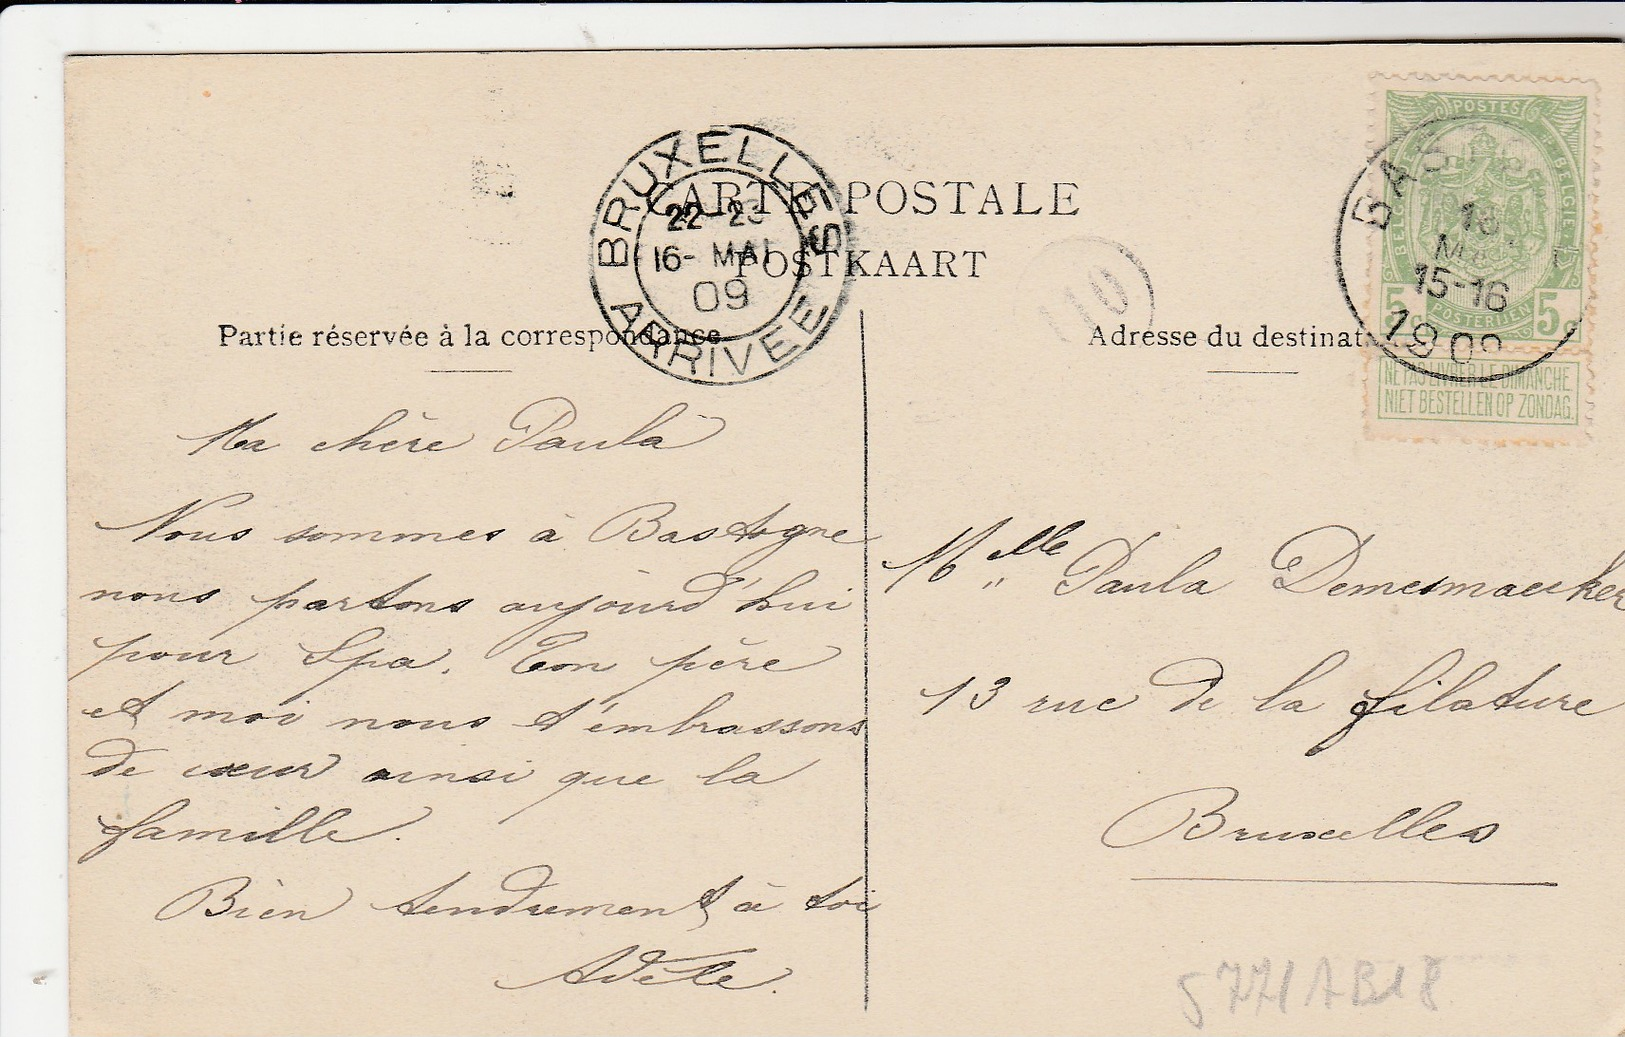 CARTE POSTALE
POSTKAART
Partie réservée à la correspondance
Adresse du destinat
BRUXELLES
22-23
16-MAI
09
ARRIVEE
110
POSTES
BELGIQUE
BELGIE
5c POSTERIJEN 5c
NE PAS LIVRER LE DIMANCHE
NIET BESTELLEN OP ZONDAG.
BAS
16
MAI
15-16
1909
Ma chère Paula
Nous sommes à Bastogne
nous partons aujourd'hui
pour Spa. Ton père
et moi nous t'embrassons
de cœur ainsi que la
famille.
Bien tendrement à toi
Adèle.
Melle Paula Demesmaecker
13 rue de la filature
Bruxelles